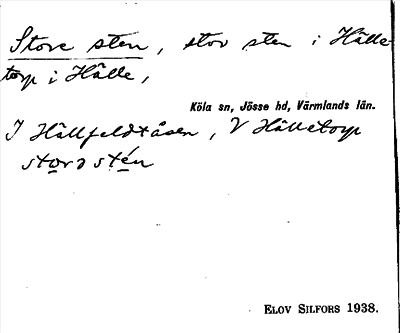 Store sten, stor sten i Hälle-
torp i Hälle,
Köla sn, Jösse hd, Värmlands län.
I Hällfeldtåsen, V Hälletorp
storə stén
ELOV SILFORS 1938.